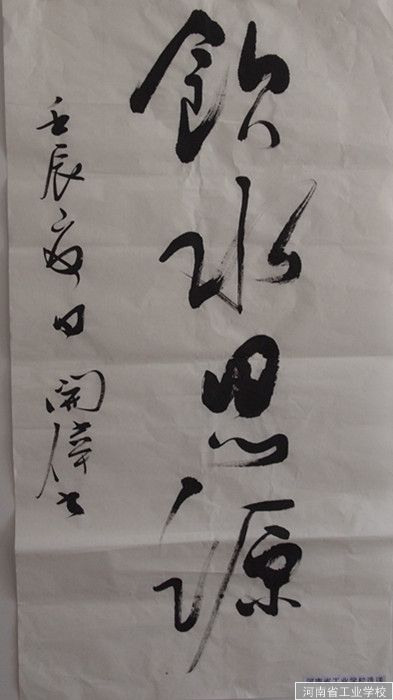 飲水思源
壬辰夏日 開偉书
河南省工业学校